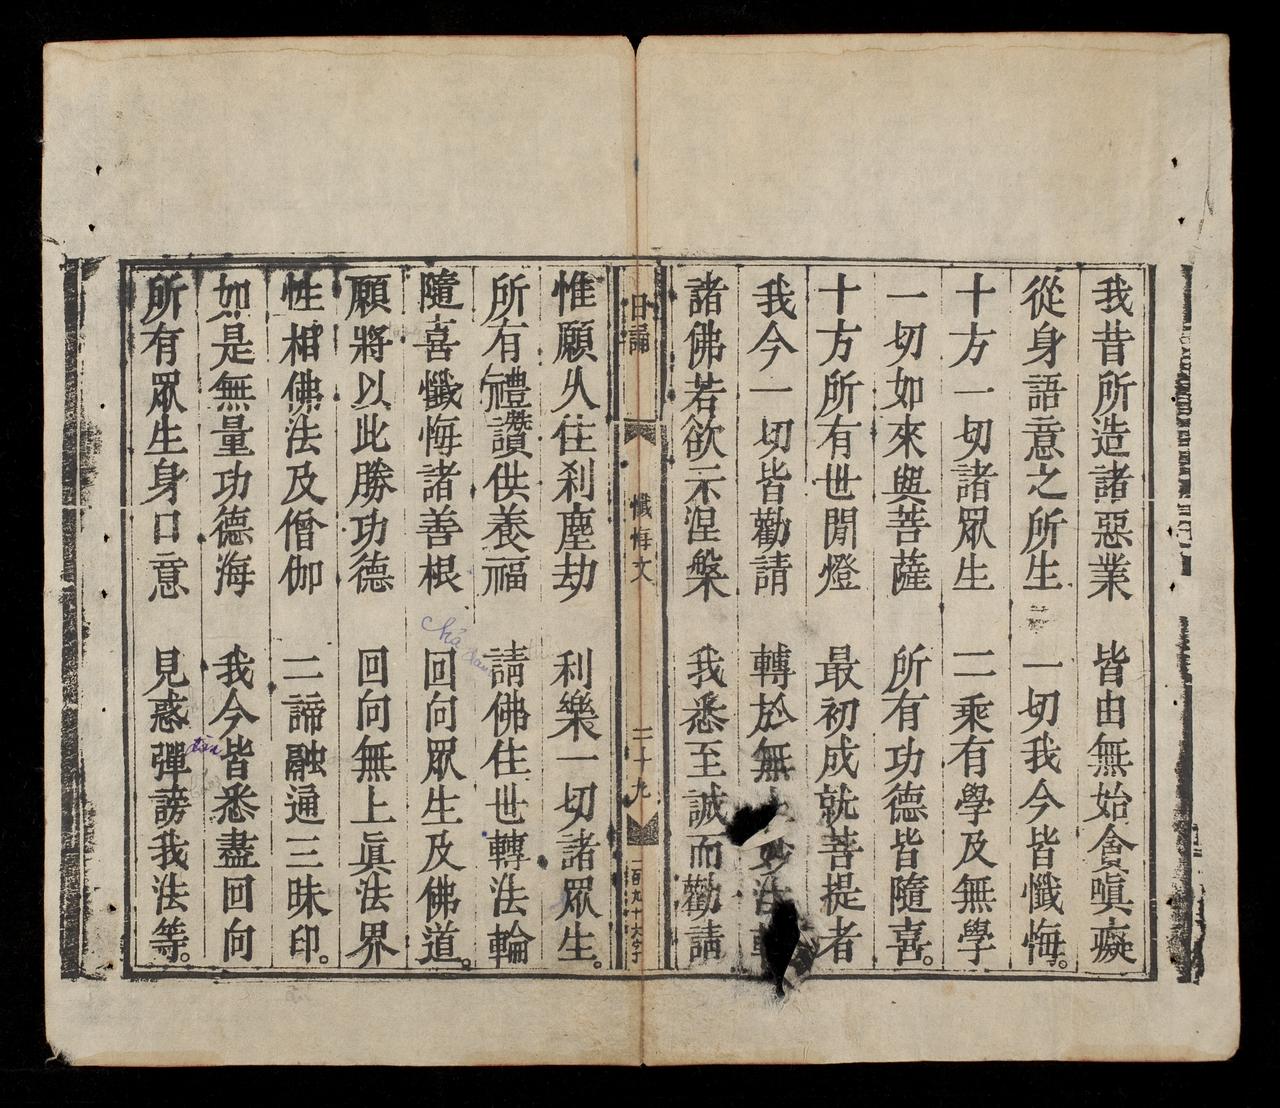 我昔所造諸惡業 皆由無始貪嗔癡
從身語意之所生 一切我今皆懺悔。
十方一切諸眾生 二乘有學及無學
一切如來與菩薩 所有功德皆隨喜。
十方所有世間燈 最初成就菩提者
我今一切皆勸請 轉於無 妙法
諸佛若欲示涅槃 我悉至誠而勸請
日誦 懺悔文 二十九 一百九十六字
惟願久住剎塵劫 利樂一切諸眾生。
所有禮讚供養福 請佛住世轉法輪
隨喜懺悔諸善根 回向眾生及佛道。
願將以此勝功德 回向無上眞法界
性相佛法及僧伽 二諦融通三昧印。
如是無量功德海 我今皆悉盡回向
所有眾生身口意 見惑彈謗我法等。